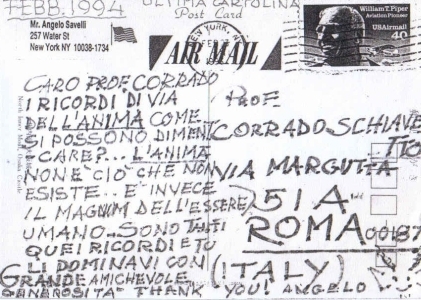 FEBB. 1994
ULTIMA CARTOLINA
Post Card
Mr. Angelo Savelli
257 Water St
New York NY 10038-1734
AIR MAIL
NEW YORK, N.Y.
William T. Piper
Aviation Pioneer
USAirmail
40
CARO PROF. CORRADO
I RICORDI DI VIA
DELL'ANIMA COME
SI POSSONO DIMENTI
CARE?... L'ANIMA
NON E CIO' CHE NON
ESISTE.. E' INVECE
IL MAGNUM DELL'ESSERE
UMANO. SONO TANTI
QUEI RICORDI E TU
LI DOMINAVI CON
GRANDE AMICHEVOLE
GENEROSITA' THANK YOU! ANGELO
PROF
CORRADO SCHIAVE
TTO
VIA MARGUTTA
51A
ROMA 00187
(ITALY)